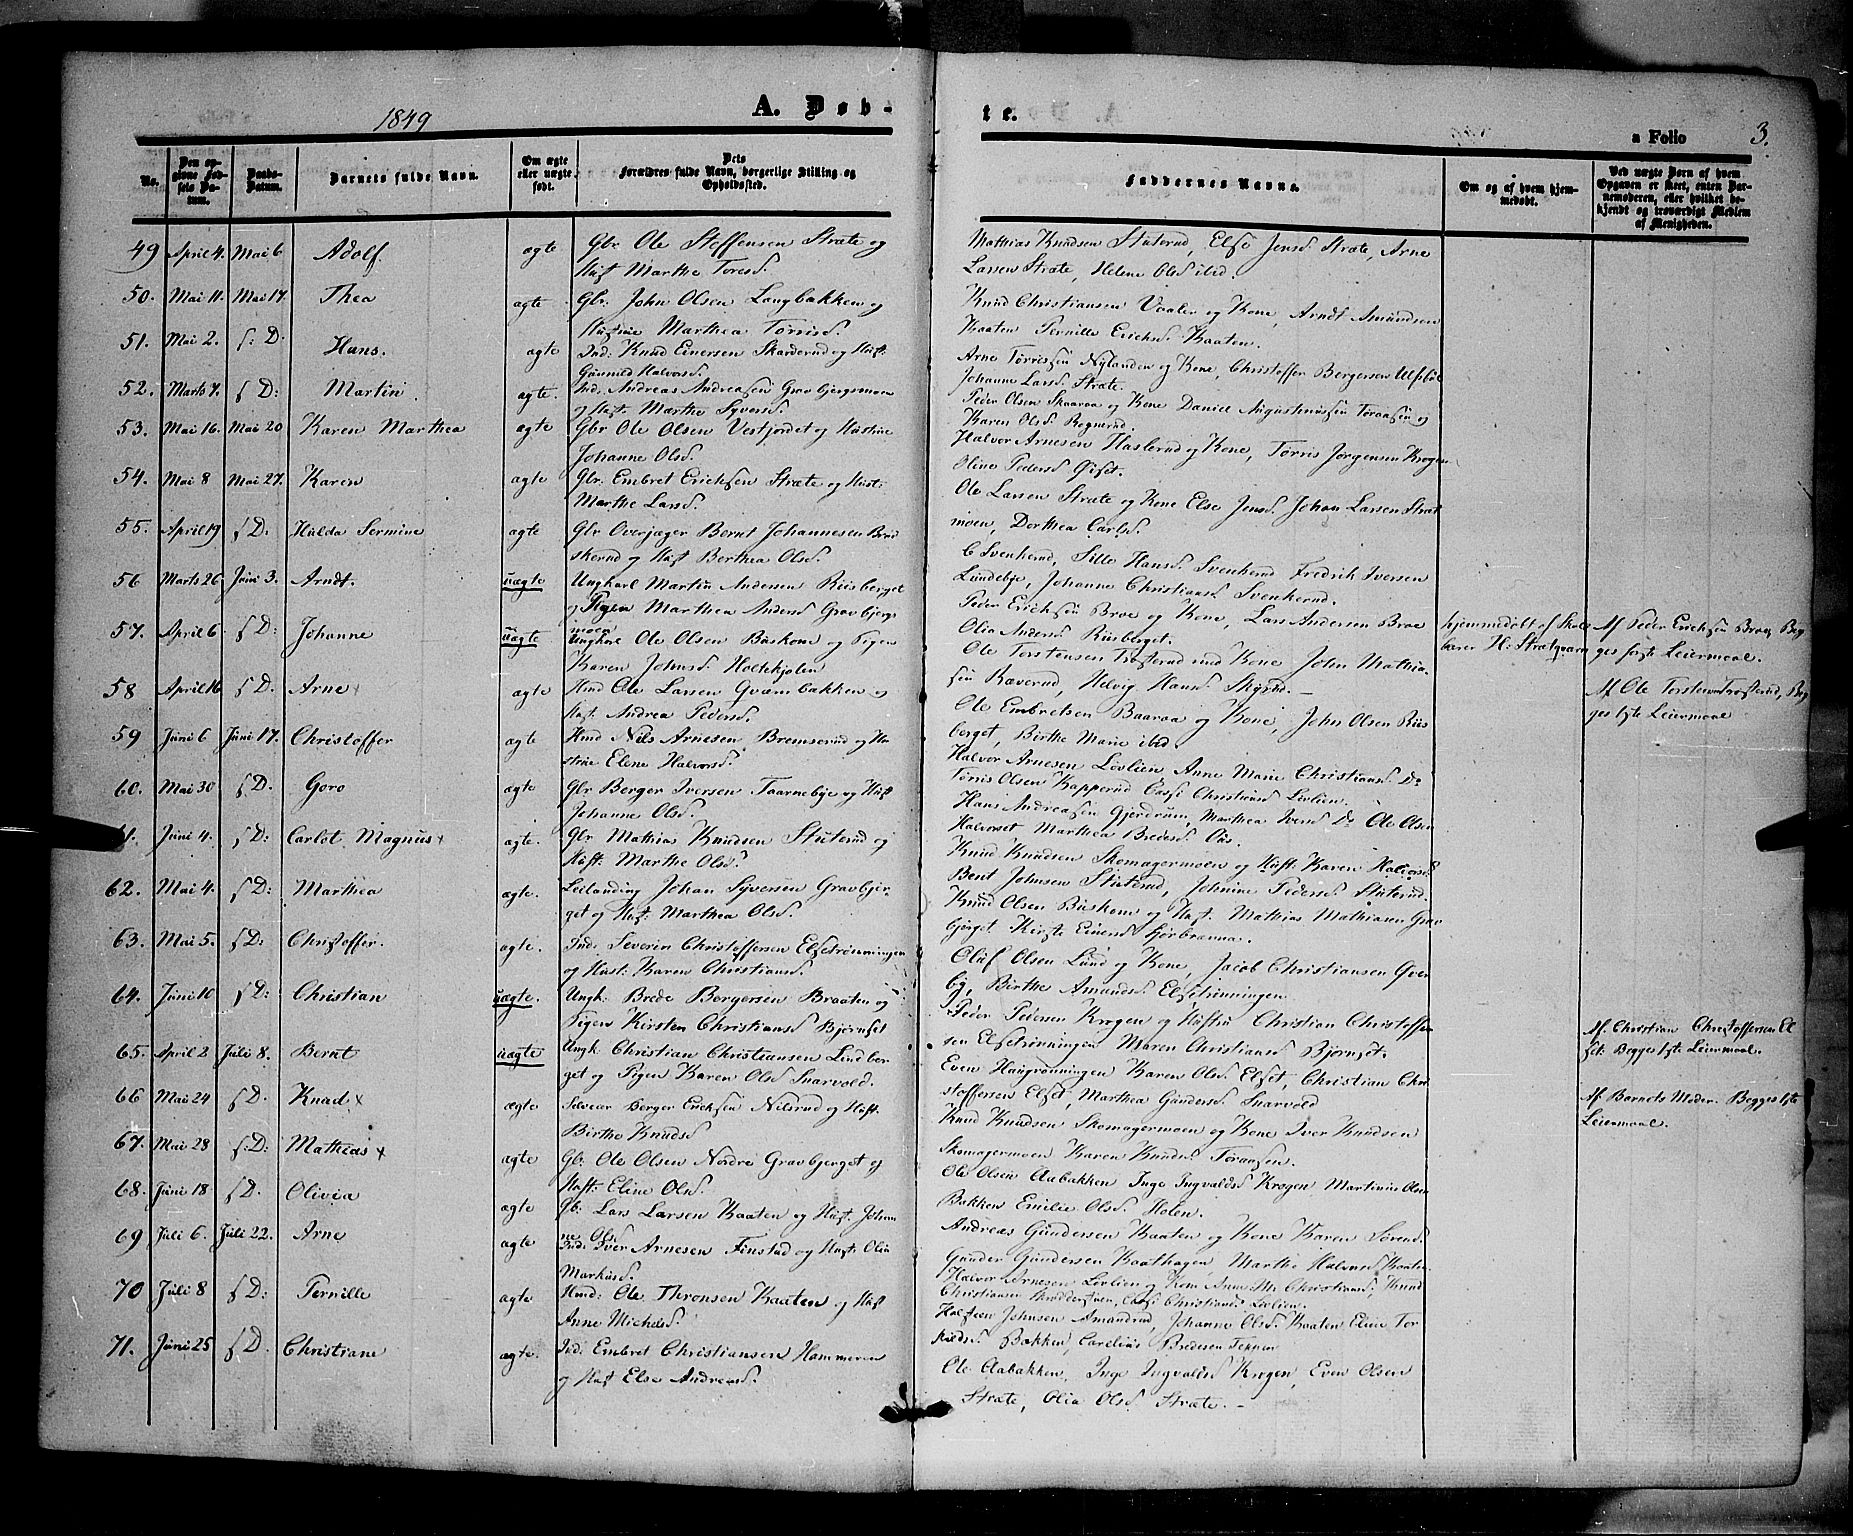 1849
A. Døb-
te.
a Folio
3.
No.
Den opgivne Fødsels Datum.
Daabs-Datum.
Barnets fulde Navn.
Om ægte eller uægte født.
Dets Forældres fulde Navn, borgerlige Stilling og Opholdssted.
Faddernes Navne.
Om og af hvem hjemmedøbt.
Ved uægte Børn af hvem Opgaven er skeet, enten Barnemoderen, eller hvilket bekjendt og troværdigt Medlem af Menigheden.
49 April 4. Mai 6 Adolf. ægte Gbr Ole Steffensen Stræte og
Hust Marthe Toresd.
Mathias Knudsen Stuterud, Else Jensd Stræte, Arne
Larsen Stræte, Helene Olsd ibid.
50. Mai 11. Mai 17. Thea ægte Gbr: John Olsen Langbakken og
Hustrue Marthea Torrisd.
Knud Christiansen Vaaler og Kone, Arndt Amundsen
Kaaten Pernille Erichsd. Kaaten.
51. Mai 2. s: D. Hans. ægte Ind: Knud Einersen Skarderud og Hust:
Gunnild Halvorsd.
Arne Torrissen Nylænden og Kone, Christoffer Bergersen
Johanne Larsd. Stræte.
52. Marts 7. s D: Martin. ægte. Ind. Andreas Andreasen Gravbjergsmoen
og Hust. Marthe Syversd.
Peder Olsen Skaaraa og Kone Daniel Augustinussen og
Karen Olsd Regnerud.
53. Mai 16. Mai 20 Karen Marthea ægte Gbr Ole Olsen Vestjordet og Hustrue
Johanne Olsd.
Halvor Arnesen Haslerud og Kone, Torris Jørgensen Krogen
Oline Pedersd Øiset.
54. Mai 8 Mai 27. Karen ægte Gbr. Embret Erichsen Stræte og Hust:
Marthe Larsd.
Ole Larsen Stræte og Kone Else Jensd. Johan Larsen Stræt
moen, Dorthea Carlsd.
55. April 19 s D. Hulda Sermine ægte Gbr Overjæger Bernt Johannesen Braa
skerud og Hust Berthea Olsd.
C Svenkerud, Sille Hansd. Svenkerud Fredrik Iversen
Lundebye, Johanne Christiansd Svenkerud.
56 Marts 26 Juni 3. Arndt. uægte Ungkarl Martin Andersen Riisberget
og Pigen Marthea Andersd Gravbjergs
moen
Peder Erichsen Broe og Kone, Lars Andersen Broe
Olia Andersd Riisberget.
Af Peder Erichsen Broe, Beg
ges første Leiermaal.
57. April 6. s D: Johanne uægte Ungkarl Ole Olsen Buskom og Pigen
Karen Johnsd Holtekjølen
Ole Torstensen Trosterud med Kone, John Mathia
senRæverud, Helvig Hansd.
hjemmedøbt af Skole
lærer H: Strætqværn
Af Ole Torstensen Trosterud, Beg
ges 1ste Leiermaal
58 April 16 s D: Arne x ægte Hmd Ole Larsen Gværnbakken og
Hust: Andrea Pedersd.
Ole Embretsen Baaraa og Kone, John Olsen Riis
berget, Birthe Marie ibid.
59 Juni 6 Juni 17. Christoffer ægte Hmd Nils Arnesen Bremserud og Hu
strue Elene Halvorsd.
Halvor Arnesen Løvlien Anne Marie Christiansd Do
Torris Olsen Kapperud Cassi Christiansd Løvlien.
60. Mai 30 s D. Goro ægte Gbr Berger Iversen Taarnebye og Hust
Johanne Olsd.
Hans Andreasen Gjerdrum, Marthea Iversd Do Ole Olsen
Halvorset Marthea Bredesd Ous.
61. Juni 4. s D: Carlot Magnus x ægte. Gbr Mathias Knudsen Stuterud og
Hust: Marthe Olsd.
Knud Knudsen Skomagermoen og Hust. Karen Halvorsd
Bent Johnsen Stuterud, Johnine Pedersd Stuterud.
62. Mai 4. s D: Marthea ægte. Leilænding Johan Syversen Gravbjer
get og Hust. Marthea Olsd.
Knud Olsen Buskom og Hust. Mathias Mathiasen Grav
bjerget Kirste Einersd Hørbranna.
63. Mai 5. s D: Christoffer. ægte. Ind: Severin Christoffersen Elsetrønningen
og Hust: Karen Christiansd.
Oluf Olsen Lund og Kone, Jacob Christiansen Gver
by, Birthe Amundsd. Elsetrønningen
64. Juni 10 s D: Christian uægte. Ungk: Brede Bergersen Braaten og
Pigen Kirsten Christiansd Bjørnset
Peder Pedersen Krogen og Hustru Christian Christoffer
sen Elsetrønningen Maren Christiansd Bjørnset.
Af Christian Christoffersen El
set: Begges 1ste Leiermaal.
65. April 2 Juli 8. Bernt uægte Ungk. Christian Christiansen Lindber
get og Pigen Karen Olsd Snarvold.
Even Haugrønningen Karen Olsd. Elset, Christian Chri
stoffersen Elset, Marthea Gundersd. Snarvold
Af Barnets Moder. Begges 1ste
Leiermaal.
66 Mai 24 s D. Knud x ægte Selveier Berger Erichsen Nilsrud og Hust.
Birthe Knudsd
Knud Knudsen Skomagermoen og Kone Iver Knudsen
Skomagermoen Karen Knudsd Toransen.
67. Mai 28 s: D: Mathias x ægte Gb: Ole Olsen Nordre Gravbjerget og
Hust: Eline Olsd.
Ole Olsen Aabakken Inge Ingvaldsd Krogen Martinus Olsen
Bakken Emilie Olsd. Holen.
68. Juni 18 s D. Olivia ægte Gb: Lars Larsen Kaaten og Hust. Johan
ne Olsd.
Andreas Gundersen Kaaten og Kone Karen Sørensd
Gunder Gundersen Kaathagen Marthe Halvorsd Kaaten
69 Juli 6. Juli 22. Arne ægte Ind: Iver Arnesen Finstad og Hust. Olia
Markusd.
Halvor Arnesen Løvlien og Kone Anne M: Christiansd, Knud
Christiansen Cassi Christiansd. Løvlien.
70 Juli 8 s D: Pernille ægte Hmd: Ole Thronsen Kaaten og Hust
Anne Michelsd.
Halsteen Johnsen Amundrud, Johanne Olsd. Kaaten Eline Tor
kildsd. Bakken, Carelius Bredesen
71. Juni 25 s D. Christiane ægte. Ind: Embret Christiansen Hammeren
og Hust Else Andreasd.
Ole Aabakken, Inge Ingvaldsd Krogen, Even Olsen
Stræte, Olia Olsd Stræte. –